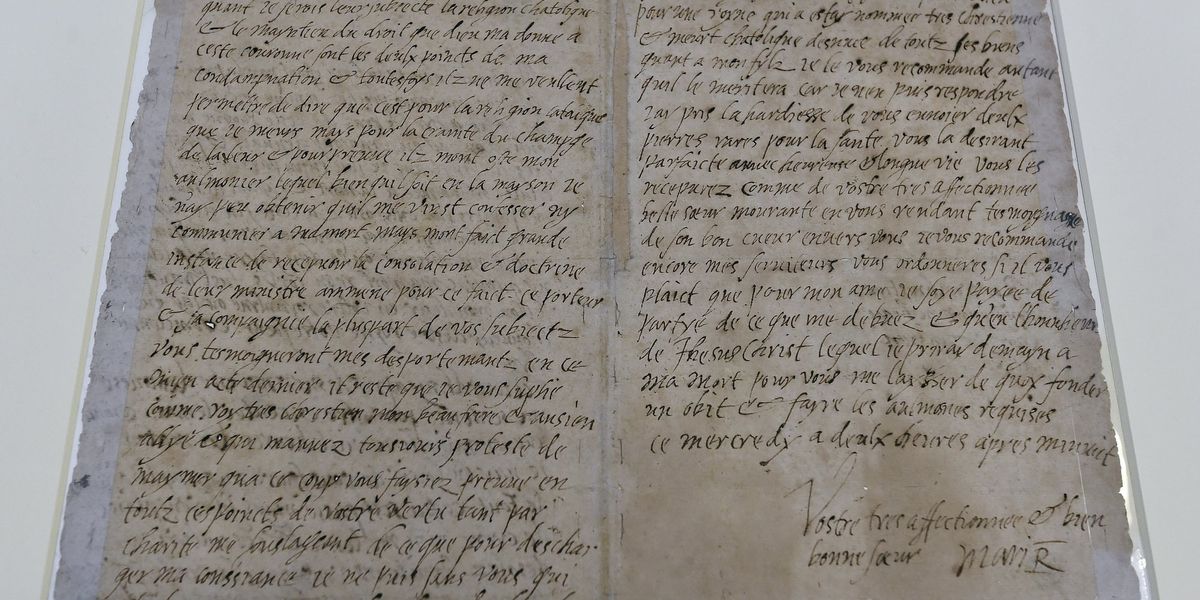 quant je serois leur subjecte la religion chatolique
& le mayntien du droit que dieu ma donne a
ceste couronne sont les deulx points de ma
condampnation & toutesfoys ilz ne me veulent
permettre de dire que cest pour la religion catolique
que je meurs mays pour la crainte du champge
de la leur & pour preuve ilz mont oste mon
aulmonier lequel bien quil soit en la mayson je
nay peu obtenir quil me vinst confesser ny
communier a ma mort mays mont fait grande
instance de recepvoir la consolation & doctrine
de leur ministre ammene pour ce faict ce porteur
& sa compaignie la pluspart de vos subjectz
vous tesmoigneront mes desportemantz en ce
mien acte dernier il reste que je vous suplie
comme roy tres chrestien mon beau frere & ansien
allye & qui mavvez tousjours proteste de
maymer qua ce coup vous faysiez preuve en
toutz ces points de vostre vertu tant par
charite me souslageant de ce que pour deschar
ger ma conssiance je ne puis sans vous qui
pour une royne qui a estay nommee tres chrestienne
& meurt chatolique desnuee de toutz ses biens
quant a mon filz je le vous recommande autant
quil le meritera car je nen puis respondre
jay pris la hardiesse de vous envoier deulx
pierres rares pour la sante vous la desirant
parfaicte avvec heureuse & longue vie vous les
recepvrez comme de vostre tres affectionnee
belle sœur mourante en vous rendant tesmoygnasge
de son bon cueur envers vous je vous recommande
encore mes serviteurs vous ordonneres si il vous
plaict que pour mon ame je soye payee de
partye de ce que me debvez & quen lhonneur
de Jhesus Christ lequel je priray demayn a
ma mort pour vous me laysser de quoy fonder
un obit & fayre les aulmones requises
ce mercredy a deulx heures apres minuit
Vostre tres affectionnee & bien
bonne sœur Mari R